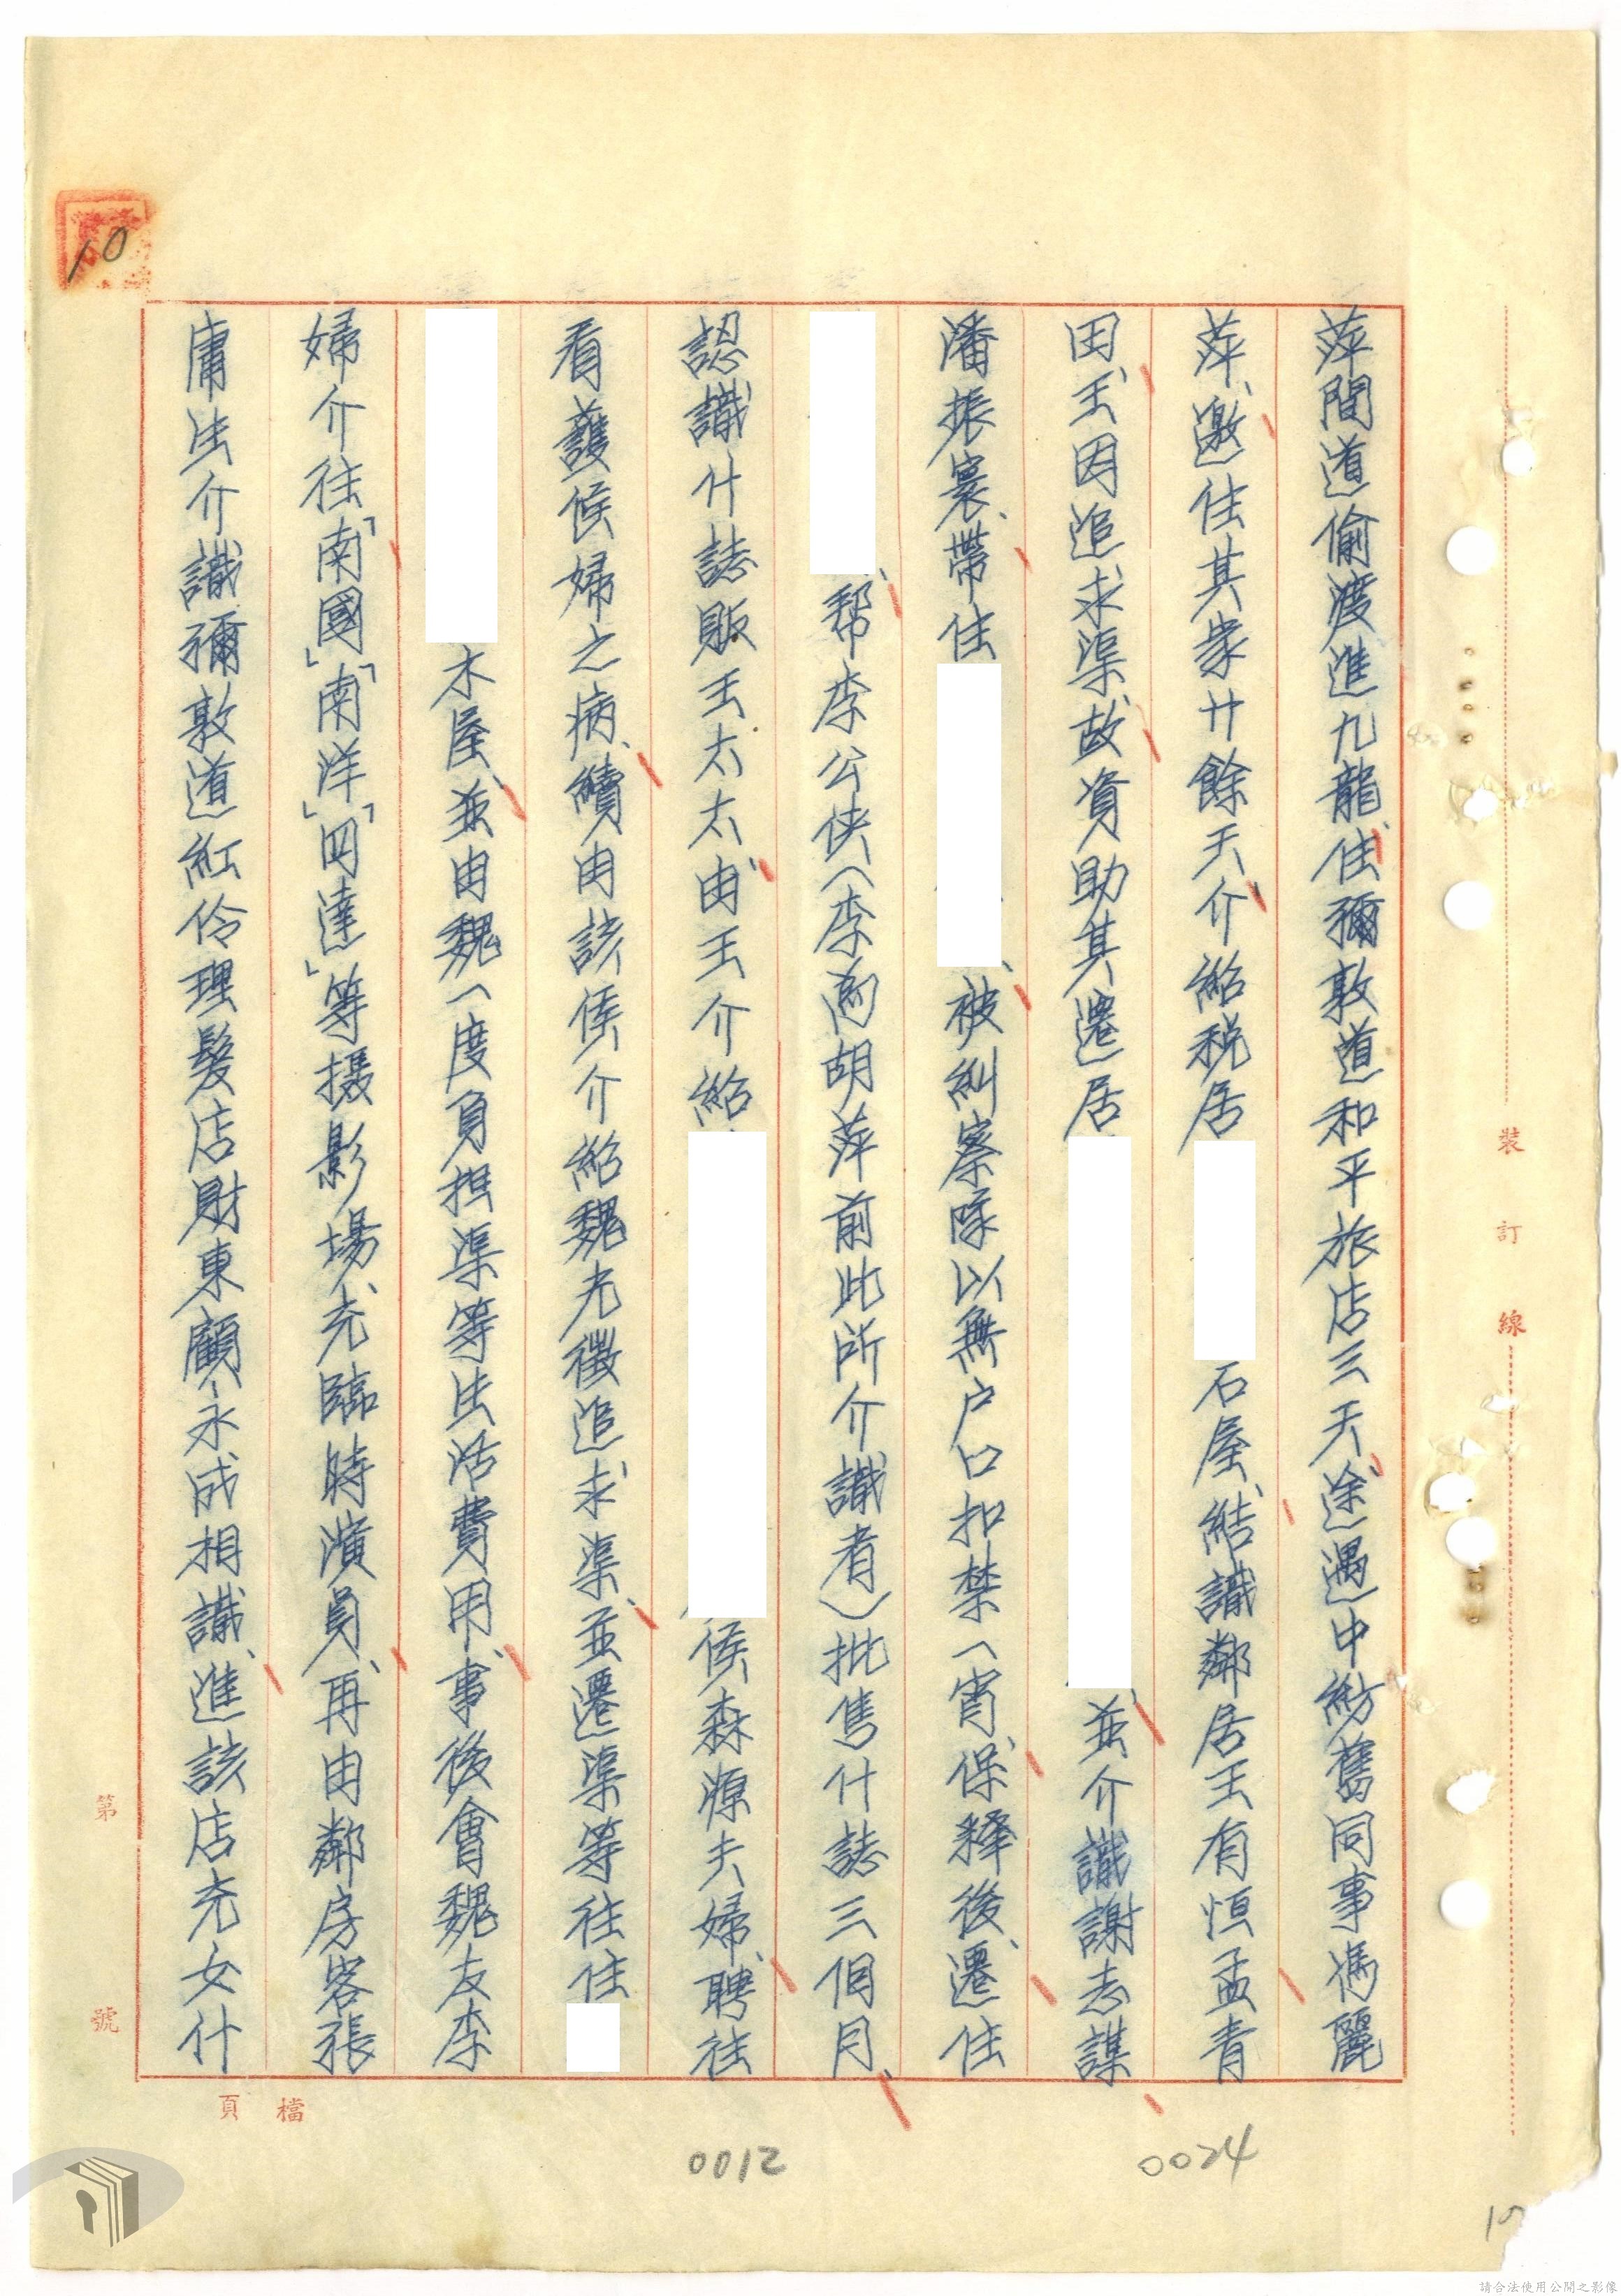 萍間道偷渡進九龍住彌敦道和平旅店三天、途遇中紡舊同事馮麗
萍、邀住其家廿餘天、介紹稅居
石屋、結識鄰居王有恒孟青
田、王因追求渠、故資助其遷居
並介識謝志謀
潘振寰、帶住
、被糾察隊以無戶口扣禁一宵、保釋後、遷住
、幫李公俠(李為胡萍前此所介識者)批售什誌三個月、
認識什誌販王太太、由王介紹
侯森源夫婦、聘往
看護侯婦之病、續由該侯介紹魏光徵追求渠、並遷渠等往住
木屋、並由魏一度負担渠等生活費用、事後會魏友李
婦介往「南國」「南洋」「四達」等摄影場、充臨時演員、再由鄰房客張
庸生介識彌敦道紅伶理髮店財東顧永成相識、進該店充女什
裝
訂
線
第
號
檔
頁
10
0012
0024
請合法使用公開之影像